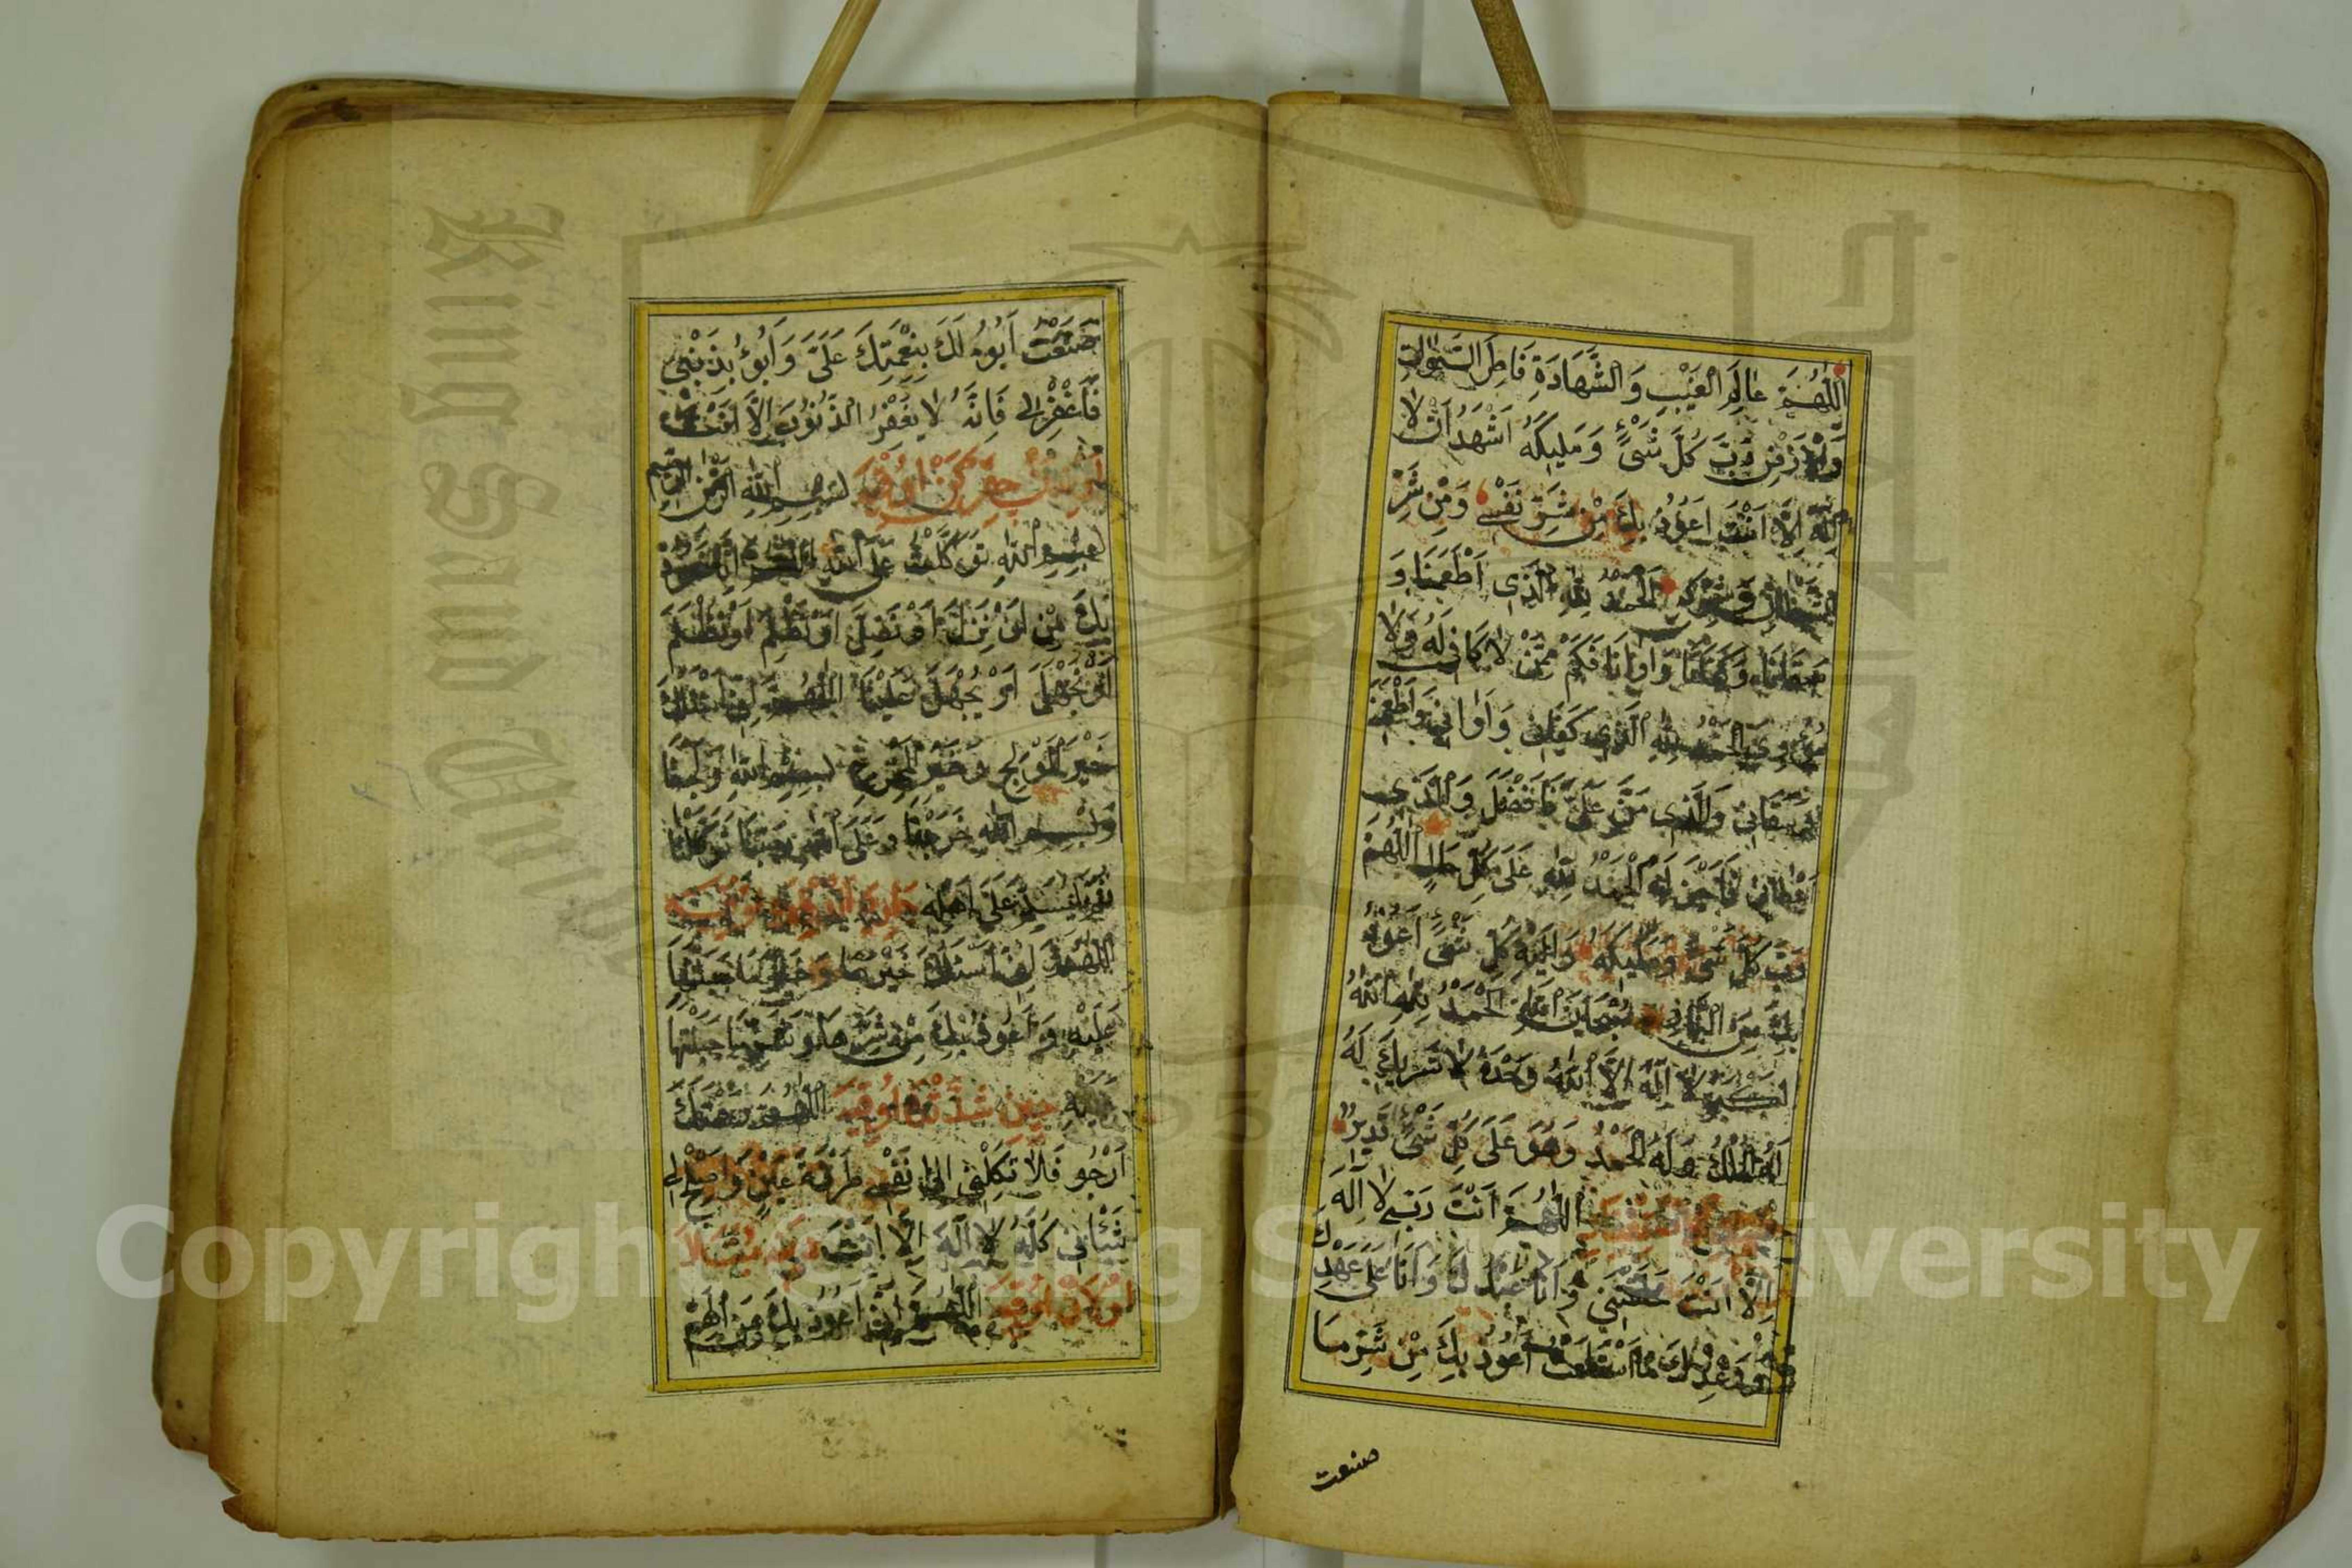 اَللّٰهُمَّ عَالِمَ الْغَيْبِ وَالشَّهَادَةِ فَاطِرَ السَّمٰوَاتِ
وَالْاَرْضِ رَبَّ كُلِّ شَيْءٍ وَمَلِيكَهُ اَشْهَدُ اَنْ لَا
اِلٰهَ اِلَّا اَنْتَ اَعُوذُ بِكَ مِنْ شَرِّ نَفْسِي وَمِنْ شَرِّ
الشَّيْطَانِ وَشِرْكِهِ اَلْحَمْدُ لِلّٰهِ الَّذِي اَطْعَمَنَا وَ
سَقَانَا وَكَفَانَا وَاٰوَانَا فَكَمْ مِمَّنْ لَا كَافِيَ لَهُ وَلَا
مُؤْوِيَ اَلْحَمْدُ لِلّٰهِ الَّذِي كَفَانِي وَاٰوَانِي وَاَطْعَمَنِي
وَسَقَانِي وَالَّذِي مَنَّ عَلَيَّ فَاَفْضَلَ وَالَّذِي
اَعْطَانِي فَاَجْزَلَ اَلْحَمْدُ لِلّٰهِ عَلَى كُلِّ حَالٍ اَللّٰهُمَّ
رَبَّ كُلِّ شَيْءٍ وَمَلِيكَهُ وَاِلٰهَ كُلِّ شَيْءٍ اَعُوذُ
بِكَ مِنَ النَّارِ سُبْحَانَ اللّٰهِ اَلْحَمْدُ لِلّٰهِ اَللّٰهُ
اَكْبَرُ لَا اِلٰهَ اِلَّا اللّٰهُ وَحْدَهُ لَا شَرِيكَ لَهُ
لَهُ الْمُلْكُ وَلَهُ الْحَمْدُ وَهُوَ عَلَى كُلِّ شَيْءٍ قَدِيرٌ
اَللّٰهُمَّ اَنْتَ رَبِّي لَا اِلٰهَ
اِلَّا اَنْتَ خَلَقْتَنِي وَاَنَا عَبْدُكَ وَاَنَا عَلَى عَهْدِكَ
وَوَعْدِكَ مَا اسْتَطَعْتُ اَعُوذُ بِكَ مِنْ شَرِّ مَا
صنعت
صَنَعْتُ اَبُوءُ لَكَ بِنِعْمَتِكَ عَلَيَّ وَاَبُوءُ بِذَنْبِي
فَاغْفِرْ لِي فَاِنَّهُ لَا يَغْفِرُ الذُّنُوبَ اِلَّا اَنْتَ
بِسْمِ اللّٰهِ الرَّحْمٰنِ الرَّحِيمِ
بِسْمِ اللّٰهِ تَوَكَّلْتُ عَلَى اللّٰهِ اَللّٰهُمَّ اِنَّا نَعُوذُ
بِكَ مِنْ اَنْ نَزِلَّ اَوْ نَضِلَّ اَوْ نَظْلِمَ اَوْ نُظْلَمَ
اَوْ نَجْهَلَ اَوْ يُجْهَلَ عَلَيْنَا اَللّٰهُمَّ اِنِّي اَسْئَلُكَ
خَيْرَ الْمَوْلَجِ وَخَيْرَ الْمَخْرَجِ بِسْمِ اللّٰهِ وَلَجْنَا
وَبِسْمِ اللّٰهِ خَرَجْنَا وَعَلَى اللّٰهِ رَبِّنَا تَوَكَّلْنَا
عَلَى اَهْلِهِ
اَللّٰهُمَّ اِنِّي اَسْئَلُكَ خَيْرَهَا وَخَيْرَ مَا جَبَلْتَهَا
عَلَيْهِ وَاَعُوذُ بِكَ مِنْ شَرِّهَا وَشَرِّ مَا جَبَلْتَهَا
عَلَيْهِ حِينَ اَللّٰهُمَّ رَحْمَتَكَ
اَرْجُو فَلَا تَكِلْنِي اِلَى نَفْسِي طَرْفَةَ عَيْنٍ وَاَصْلِحْ لِي
شَأْنِي كُلَّهُ لَا اِلٰهَ اِلَّا اَنْتَ
اَللّٰهُمَّ اِنِّي اَعُوذُ بِكَ مِنَ الْهَمِّ
Copyright © King Saud University
King Saud University